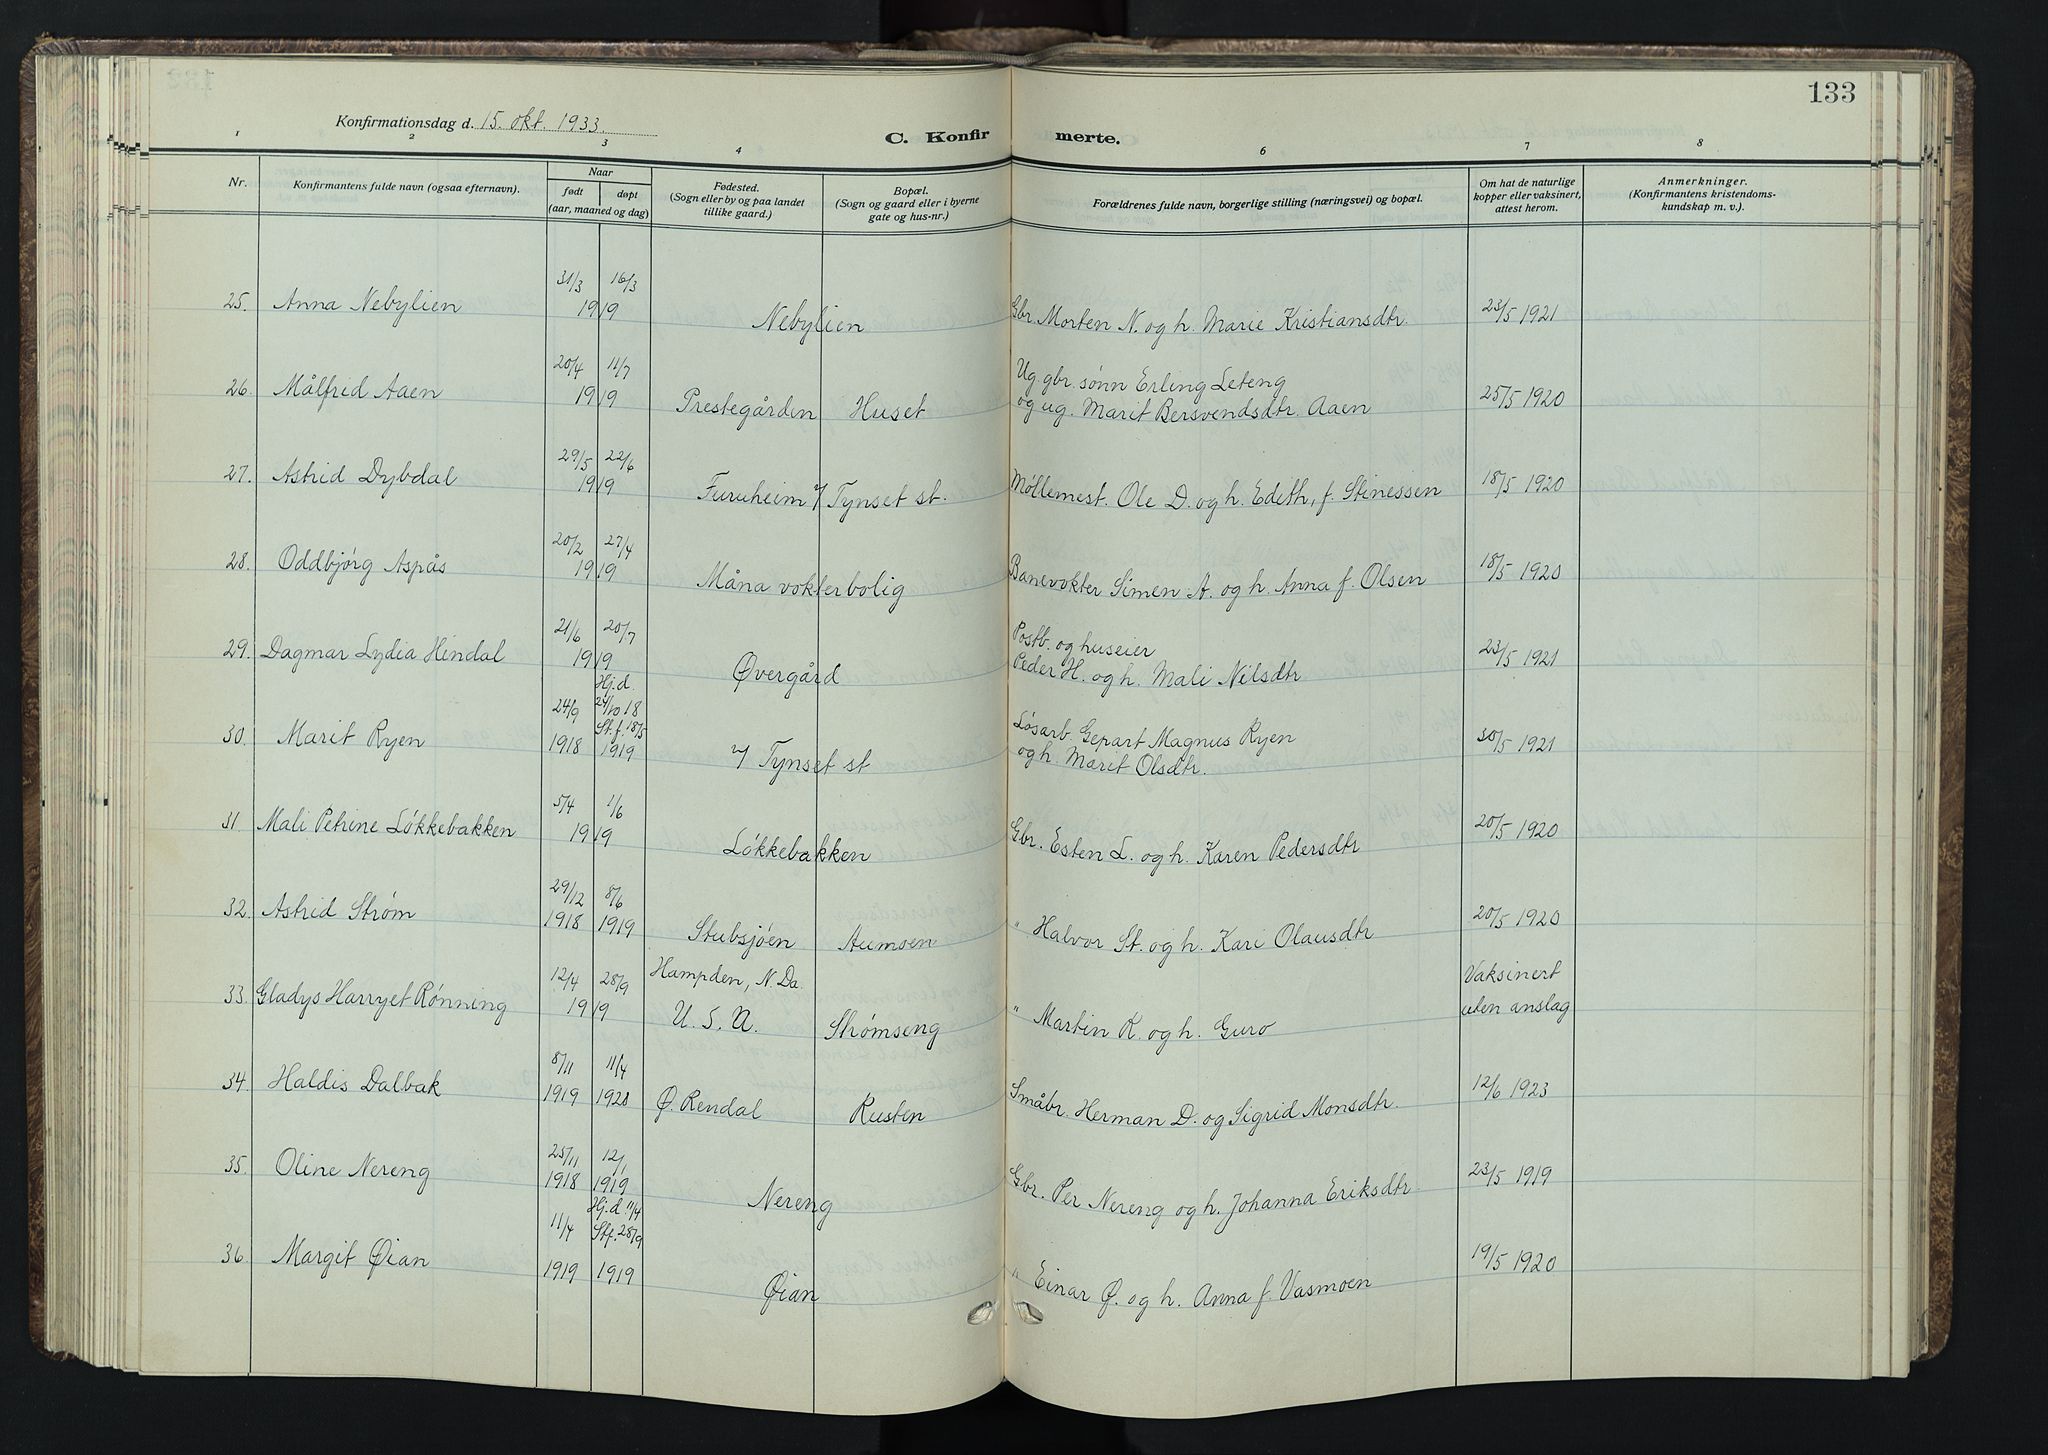 133
Konfirmationsdag d. 15. okt. 1933.
C. Konfirmerte.
1 2 3 4 6 7 8
Nr.
Konfirmantens fulde navn (ogsaa efternavn).
Naar
født døpt
(aar, maaned og dag)
Fødested.
(Sogn eller by og paa landet
tillike gaard.)
Bopæl.
(Sogn og gaard eller i byerne
gate og hus-nr.)
Forældrenes fulde navn, borgerlige stilling (næringsvei) og bopæl.
Om hat de naturlige
kopper eller vaksinert,
attest herom.
Anmerkninger.
(Konfirmantens kristendoms-
kundskap m. v.).
31/3 16/3
25. Anna Nebylien 1919 Nebylien Gbr. Morten N. og h. Marie Kristiansdtr. 23/5 1921
20/4 11/7 Ug. gbr. sønn Erling Leteng
26. Målfrid Aaen 1919 Prestegården Huset og ug. Marit Bersvendsdtr. Aaen 25/5 1920
29/5 22/6
27. Astrid Dybdal 1919 Furuheim v/ Tynset st. Møllemest. Ole D. og h. Edith, f. Stinessen 18/5 1920
20/2 27/4
28. Oddbjørg Aspås 1919 Måna vokterbolig Banevokter Simen A. og h. Anna f. Olsen 18/5 1920
21/6 20/7 Postb. og huseier
29. Dagmar Lydia Hindal 1919 Øvergård Peder H. og h. Mali Nilsdtr 23/5 1921
Hj.d.
24/9 24/10 18
St.f. 18/5 Løsarb. Gepart Magnus Ryen
30. Marit Ryen 1918 1919 v/ Tynset st og h. Marit Olsdtr. 30/5 1921
5/4 1/6
31 Mali Petrine Løkkebakken 1919 Løkkebakken Gbr. Esten L. og h. Karen Pedersdtr 20/5 1920
29/12 8/6
32. Astrid Strøm 1918 1919 Stubsjøen Aumoen " Halvor St. og h. Kari Olausdtr 20/5 1920
12/4 28/9 Hampden, N. Da. Vaksinert
33. Gladys Harryet Rønning 1919 U. S. A. Strømseng " Martin R. og h. Guro uten anslag
8/11 11/4
34. Haldis Dalbak 1919 1920 Ø. Rendal Rusten Småbr. Herman D. og Sigrid Monsdtr. 12/6 1923
25/11 12/1
35. Oline Nereng 1918 1919 Nereng Gbr. Per Nereng og h. Johanna Eriksdtr. 23/5 1919
Hj.d 11/4
11/4 Stf. 28/9
36. Margit Øian 1919 1919 Øian " Einar Ø. og h. Anna f. Vasmoen 19/5 1920